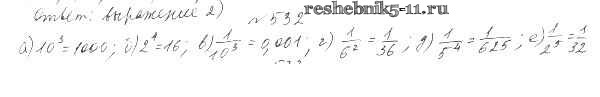 ответ: выражений 2)
reshebnik5-11.ru
№532
а) 10³=1000; б) 2⁴=16; в) 1/10³ = 0,001; г) 1/6² = 1/36; д) 1/5⁴ = 1/625; е) 1/2⁵ = 1/32